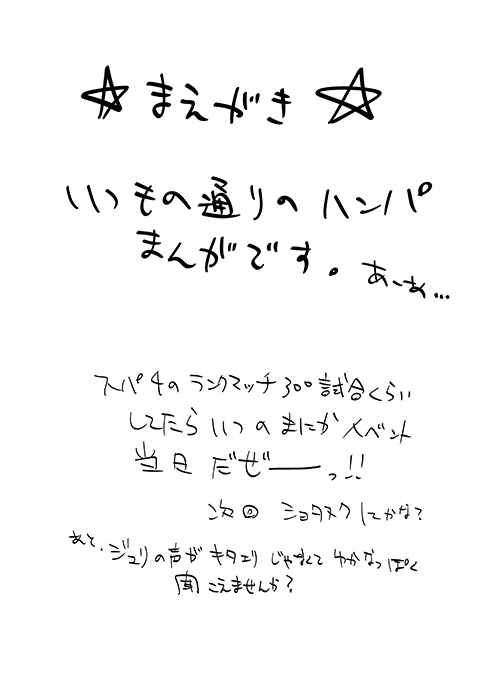 ☆まえがき☆
いつもの通りのハンパ
まんがです。あーあ…
スパ4のランクマッチ300試合くらい
してたらいつのまにかイベント
当日だぜーーっ!!
次回 ショタヌクにかな?
あと、ジュリの声がキタエリじゃなくてわかなっぽく
聞こえませんか?